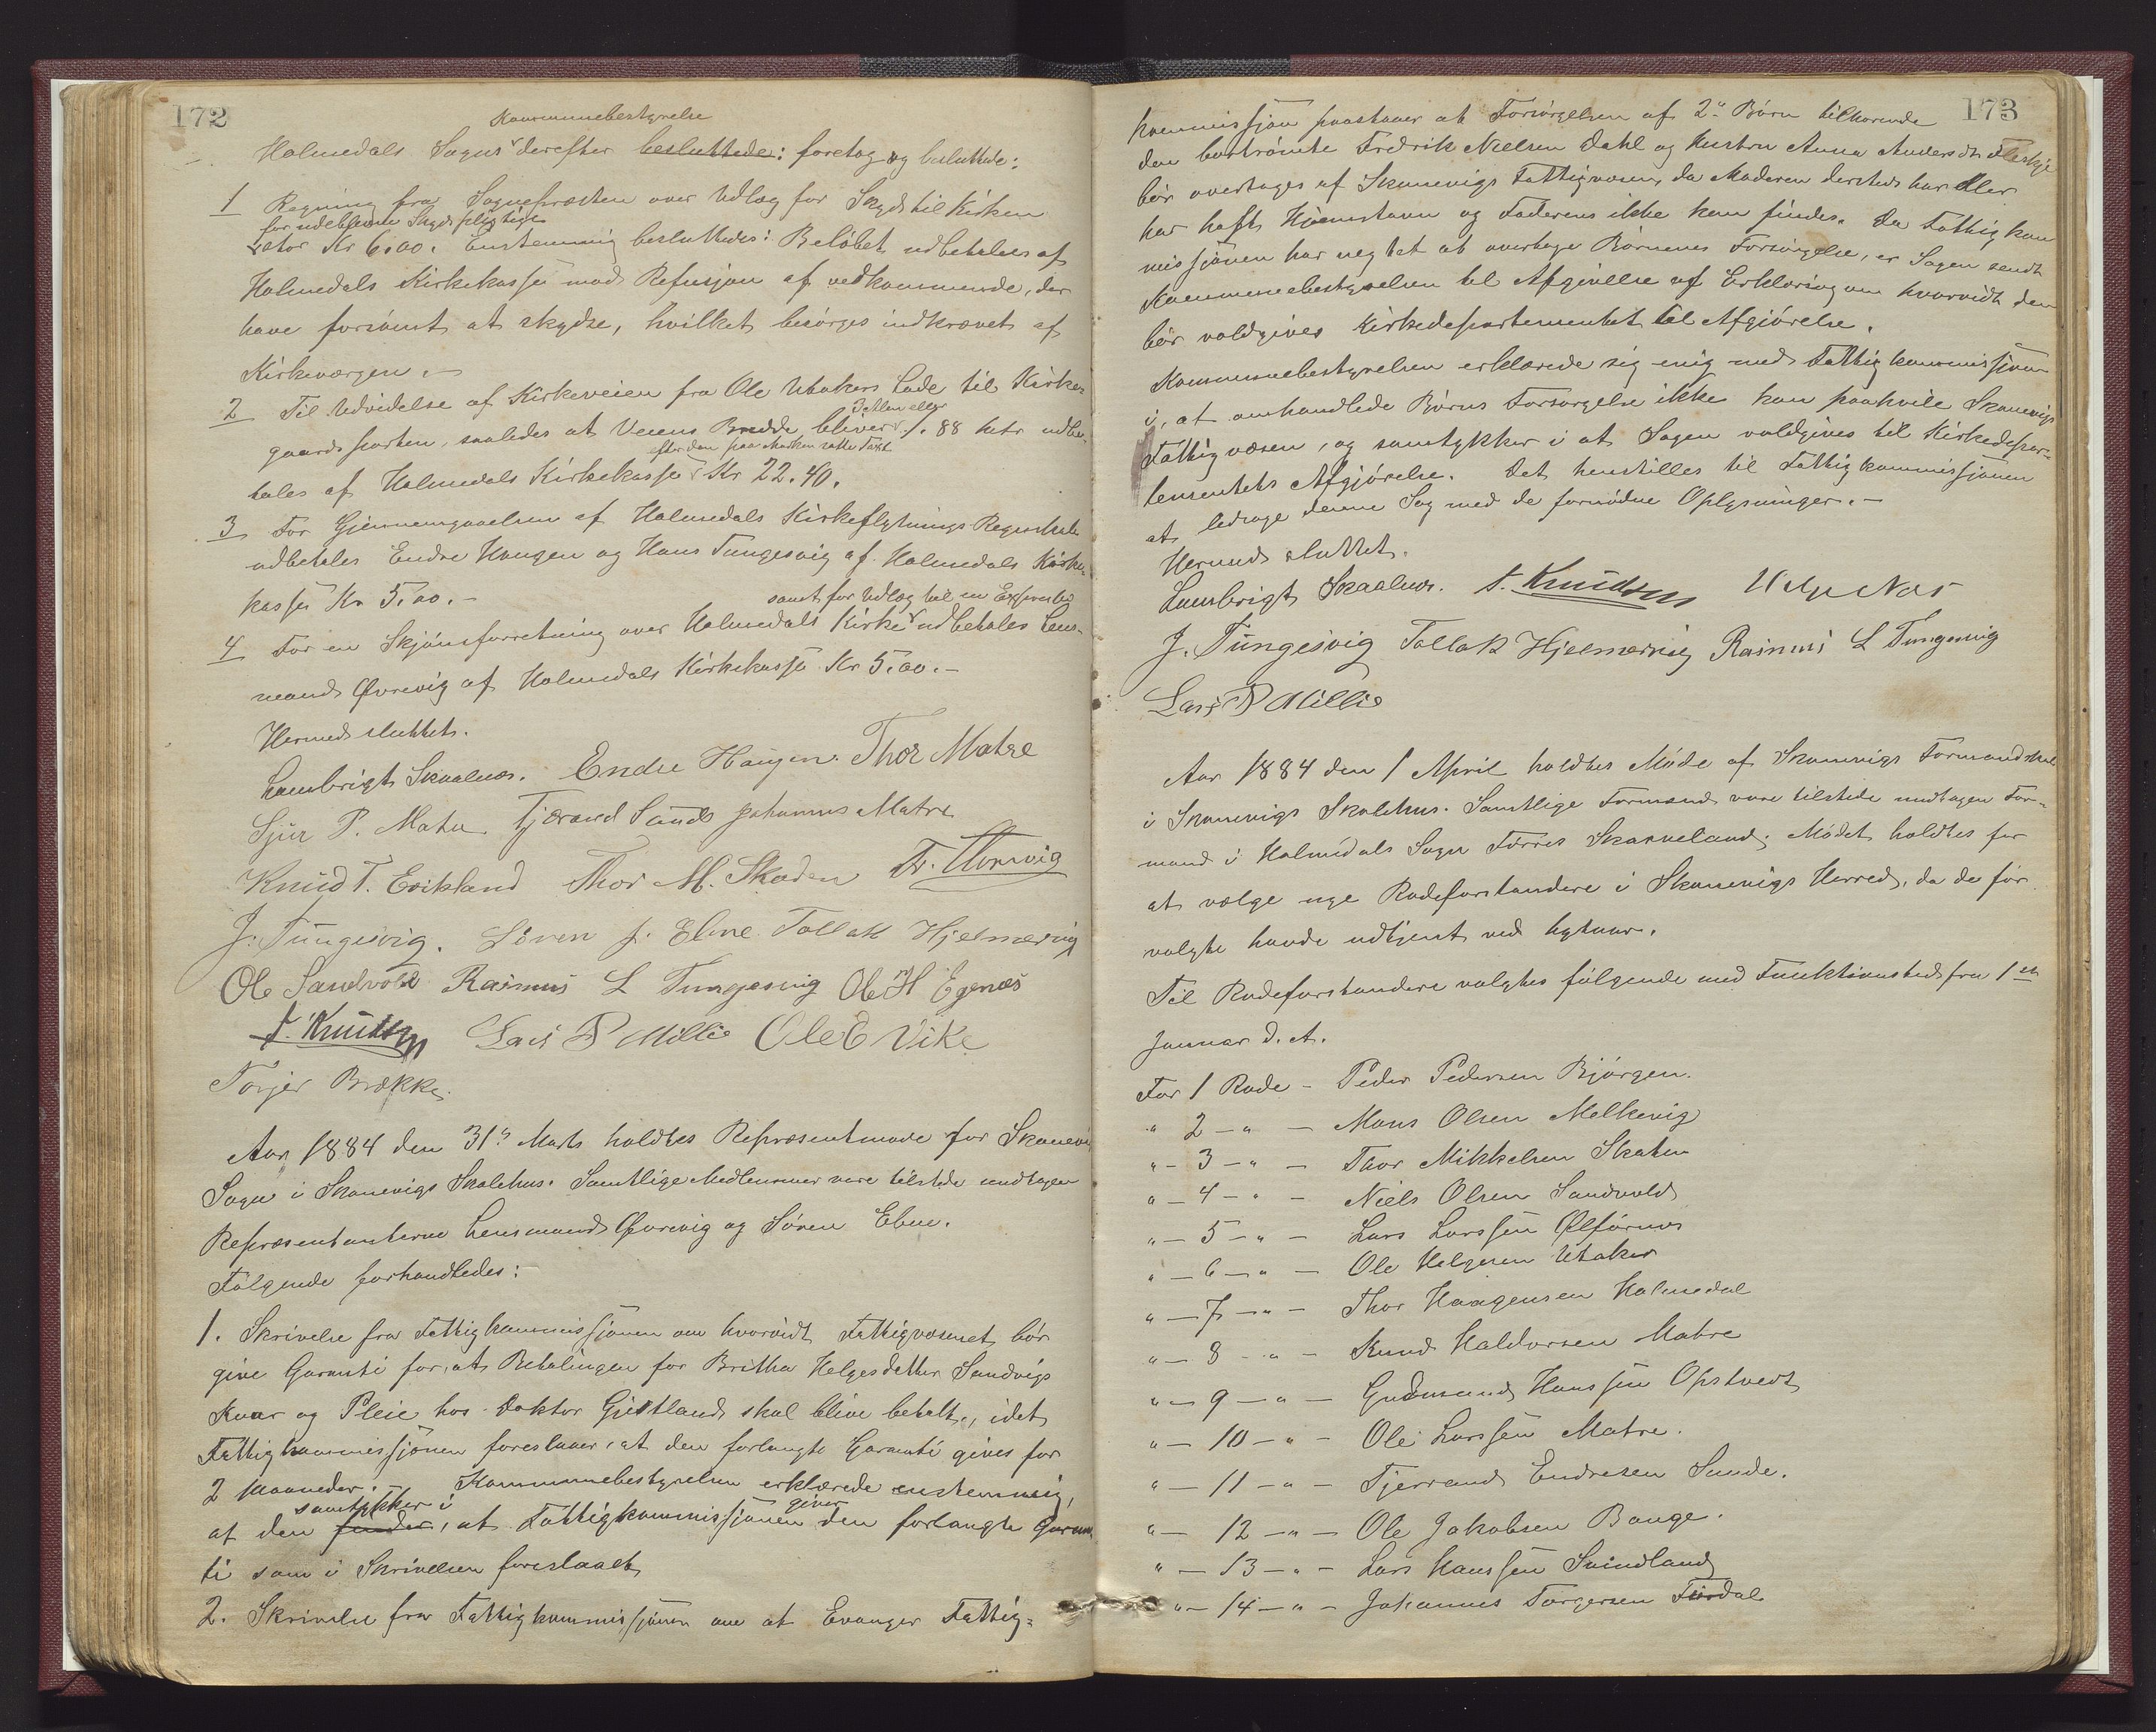 172
Kommunebestyrelse
Holmedals Sogns derefter besluttede: foretog og besluttede:
1 Regning fra Sognepræsten over Udlæg for Skyds til Kirken
for udeblevne Skydspligtige
stor Kr 6.00. Enstemmig besluttedes: Beløbet udbetales af
Holmedals Kirkekasse mod Refusjon af vedkommende, der
have forsømt at skydse, hvilket besørges indkrævet af
Kirkeværgen.-
2 Til Udvidelse af Kirkeveien fra Ole Utakers Lade til Kirke-
gaardsporten, saaledes at Veiens Bredde bliver 3 Alen eller 1.88 Metr udbe-
efter den paa Marken satte Taxt
tales af Holmedals Kirkekasse Kr 22.40.
3 For Gjennemgaaelsen af Holmedals Kirkeflytnings Regnskab
udbetales Endre Haugen og Hans Tungesvig af Holmedals Kirke-
kasse Kr 5.00.-
samt for Udlæg til en Expresbud
4 For en Skjønsforretning over Holmedals Kirke udbetales Lens-
mand Øvrevig af Holmedals Kirkekasse Kr 5.00.-
Hermed sluttet.
Lambrigt Skaalnes. Endre Haugen. Thor Matre
Sjur P. Matre Tjærand Sunde Johannes Matre
Knud T. Erikland Thor M. Skaden
J. Tungesvig. Sören J. Ebne Tollak Hjelmervig
Ole Sandvold Rasmus L Tungesvig Ole H Egenæs
T. Knudsen Lars P Millie Ole E Vike
Torjer Brække.
Aar 1884 den 31" Marts holdtes Repræsentmøde for Skanevi
Sogn i Skanevigs Skolehus. Samtlige Medlemmer vare tilstede undtagen
Repræsentanterne Lensmand Øvrevig og Søren Ebne.
Følgende forhandledes:
1. Skrivelse fra Fattigkommissjonen om hvorvidt Fattigvæsenet bør
give Garanti for, at Betalingen for Britha Helgesdatter Sandvigs
Kuur og Pleie hos Doktor Gjestland skal blive betalt, idet
Fattigkommissjonen foreslaaer, at den forlangte Garanti gives for
2 Maaneder.- Kommunebestyrelsen erklærede enstemmig,
samtykker i giver
at den finder, at Fattigkommissjonen den forlangte Garan
ti som i Skrivelsen foreslaaet
2. Skrivelse fra Fattigkommissjonen om at Evanger Fattig-
173
kommissjon paastaaer at Forsørgelsen af 2" Børn tilhørende
den bortrømte Fredrik Nielsen Dahl og Hustru Anna Andersdtr
bør overtages af Skanevigs Fattigvæsen, da Moderen dersteds har eller
har haft Hjemstavn og Faderens ikke kan findes. Da Fattigkom
missjonen har negtet at overtage Børnenes Forsørgelse, er Sagen sendt
Kommunebestyrelsen til Afgivelse af Erklæring om hvorvidt den
bør voldgives Kirkedepartementet til Afgjørelse.
Kommunebestyrelsen erklærede sig enig med Fattigkommissjonen
i, at omhandlede Børns Forsørgelse ikke kan paahvile Skanevigs
Fattigvæsen, og samtykker i at Sagen voldgives til Kirkedepar-
tementets Afgjørelse. Det henstilles til Fattigkommissjonen
at ledsage denne Sag med de fornødne Oplysninger.-
Hermed sluttet.
Lambrigt Skaalnes. T. Knudsen Helge Næs
J. Tungesvig Tollak Hjelmervig Rasmus L Tungesvig
Lars P Millie
Aar 1884 den 1 April holdtes Møde af Skanevigs Formandskab
i Skanevigs Skolehus. Samtlige Formænd vare tilstede undtagen For-
mand i Holmedals Sogn Tørres Skarveland. Mødet holdtes for
at vælge nye Rodeforstandere i Skanevigs Herred, da de før
valgte havde udtjent ved Nytaar.
Til Rodeforstandere valgtes følgende med Funktionstid fra 1ste
Januar d. A.
For 1 Rode - Peder Pedersen Bjørgen.
" 2 - " - Mons Olsen Melkevig
" - 3 - " - Thor Mikkelsen Skaten
" - 4 - " - Niels Olsen Sandvold
" - 5 - " - Lars Larssen Ølfærnes
" - 6 - " - Ole Helgesen Utaker
" - 7 - " - Thor Haagensen Holmedal
" - 8 - " - Knud Haldorsen Matre
" - 9 - " - Gudmund Hanssen Opstvedt
" - 10 - " - Ole Larssen Matre.
" - 11 - " - Tjerrand Endresen Sunde.
" - 12 - " - Ole Jakobsen Bauge.
" - 13 - " - Lars Hanssen Svindland
" - 14 - " - Johannes Torgersen Fjordal